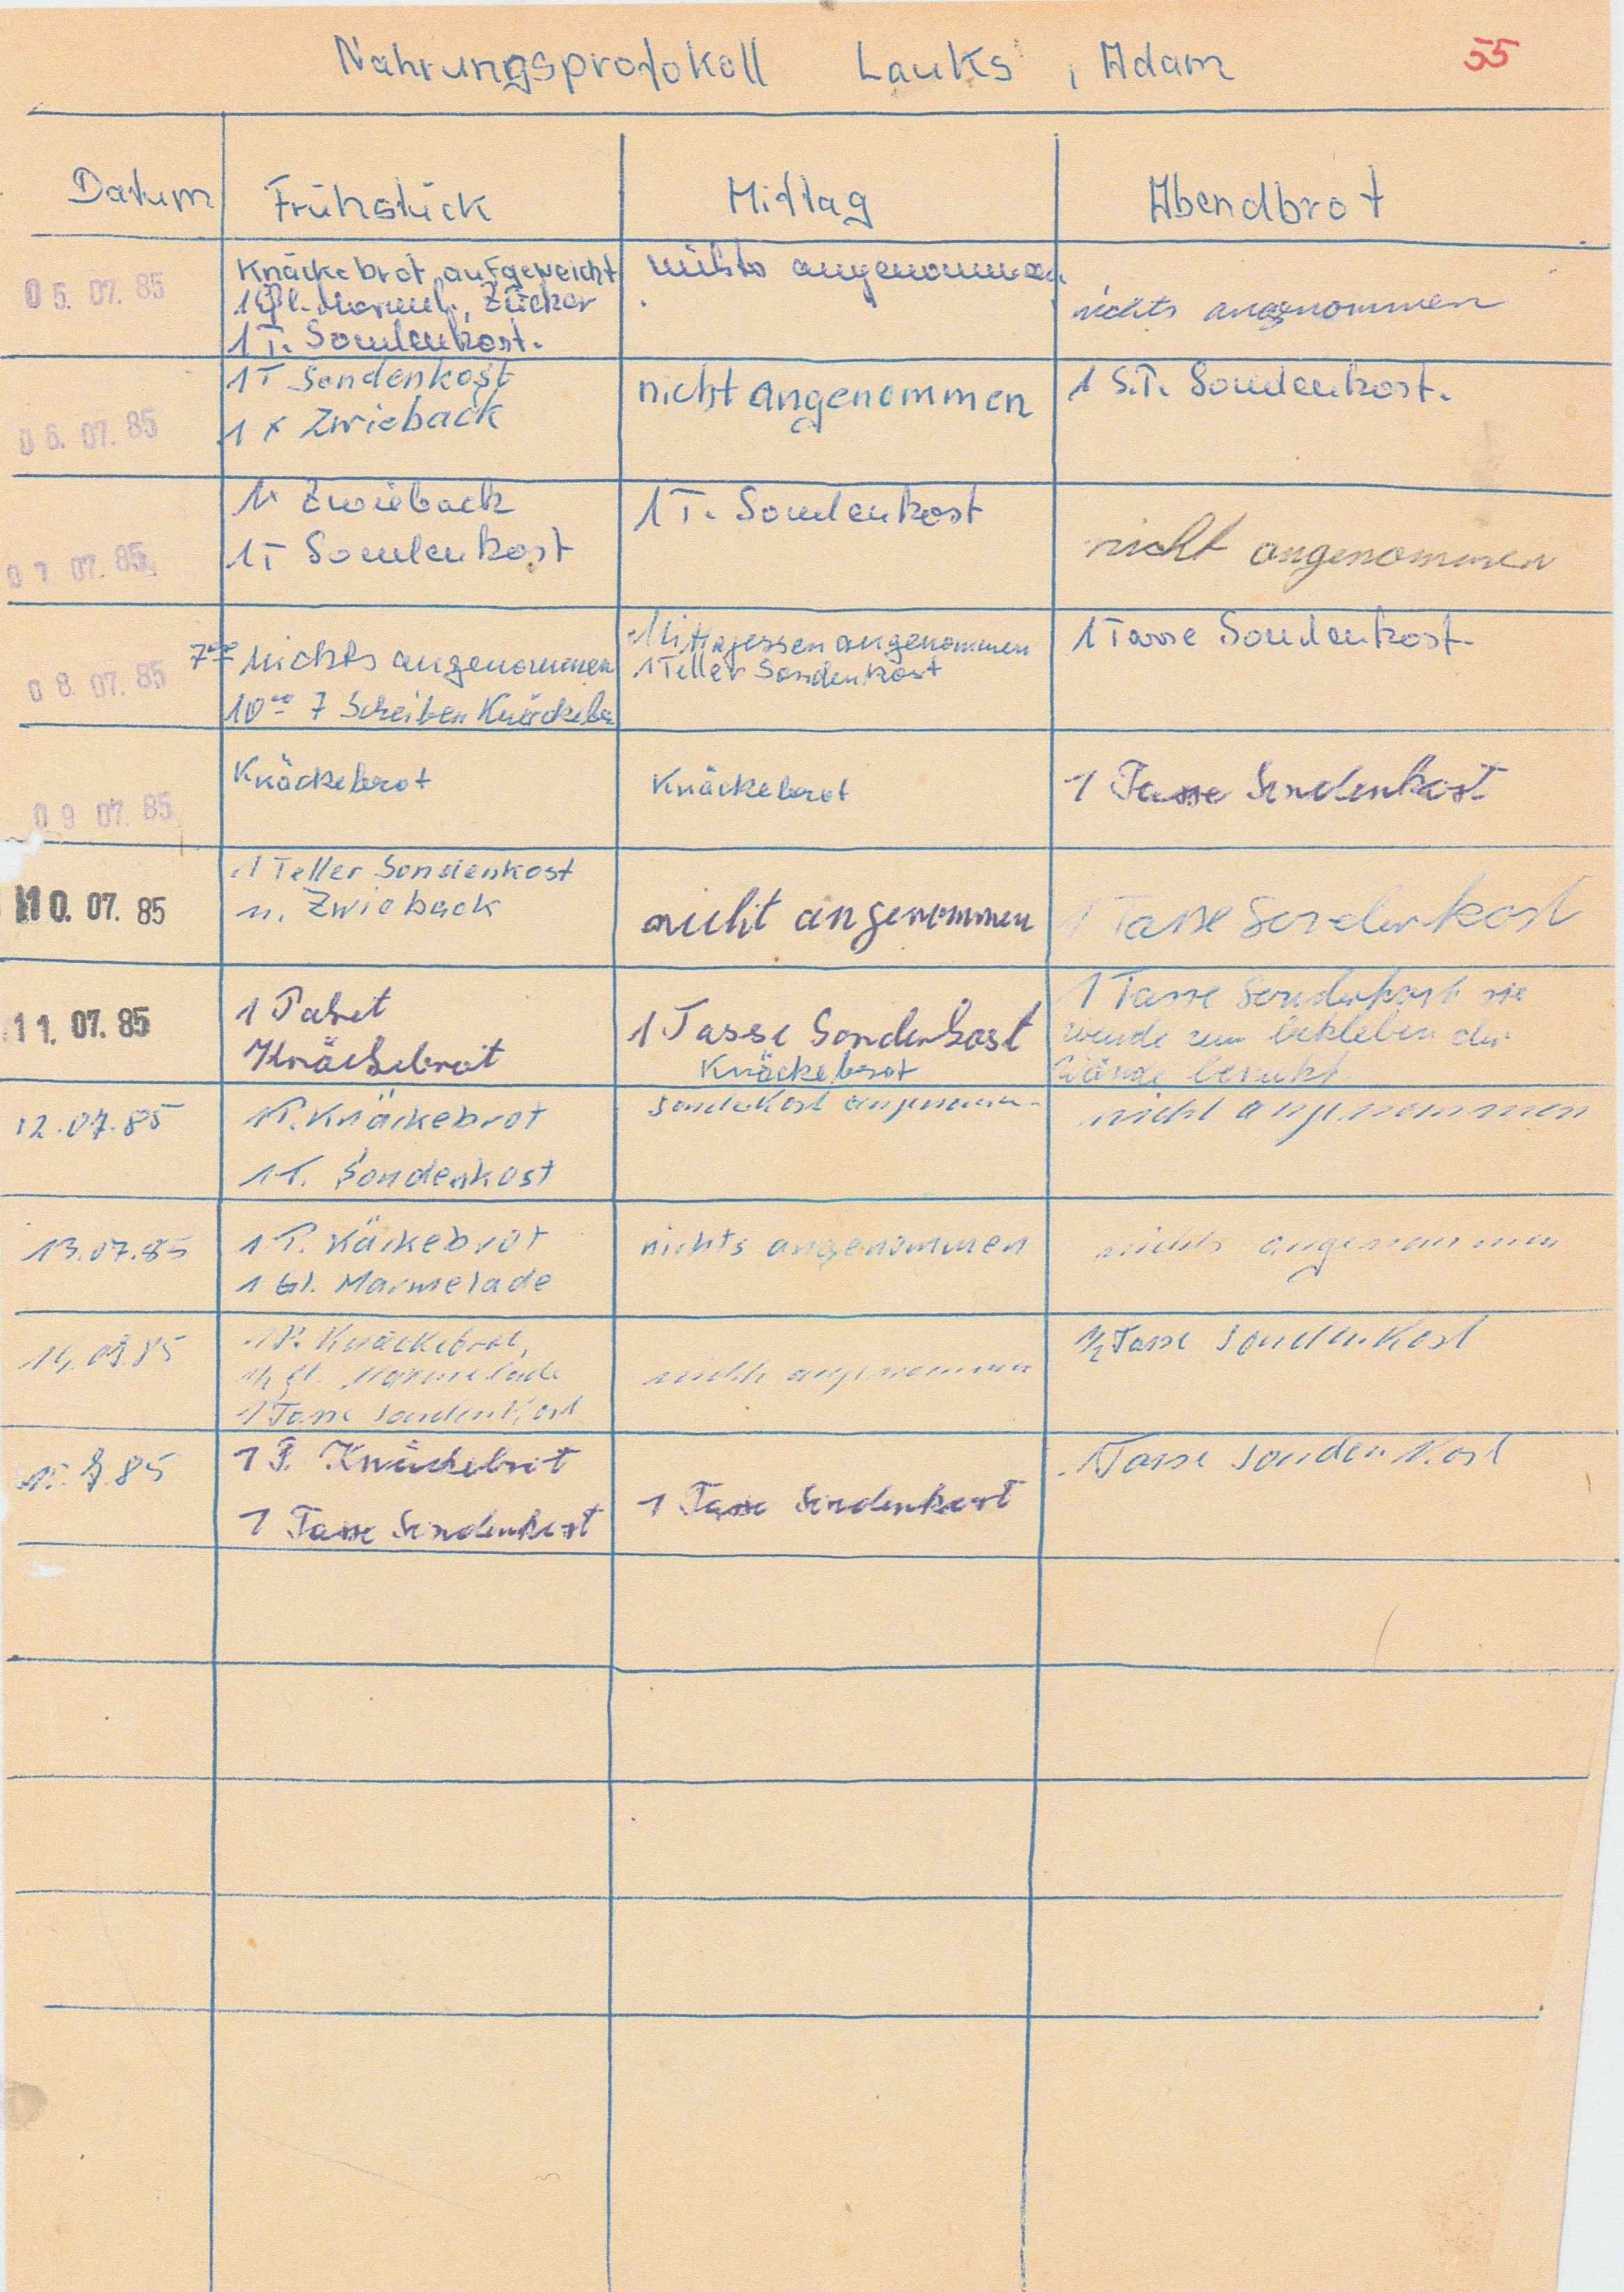 Nahrungsprotokoll Lauks, Adam 55
Datum Frühstück Mittag Abendbrot
05.07.85
Knäckebrot aufgeweicht
1 Gl. Marmel., Zucker
1 T. Sondenkost.
nichts angenommen
nichts angenommen
06.07.85
1 T Sondenkost
1 x Zwieback
nicht angenommen
1 S.T. Sondenkost.
07 07.85
1x Zwieback
1 T Sondenkost
1 T. Sondenkost
nicht angenommen
08.07.85
7⁰⁰ nichts angenommen
10⁰⁰ 7 Scheiben Knäckebr
Mittagessen angenommen
1 Teller Sondenkost
1 Tasse Sondenkost.
09 07.85
Knäckebrot
Knäckebrot
1 Tasse Sondenkost
10.07.85
1 Teller Sondenkost
u. Zwieback
nicht angenommen
1 Tasse Sondenkost
11.07.85
1 Paket
Knäckebrot
1 Tasse Sondenkost
Knäckebrot
1 Tasse Sondenkost sie
wurde zum bekleben der
Wände benutzt
12.07.85
1 P. Knäckebrot
1 T. Sondenkost
Sondenkost angenomm.
nicht angenommen
13.07.85
1 P. Käckebrot
1 Gl. Marmelade
nichts angenommen
nichts angenommen
14.07.85
1 P. Knäckebrot,
1/2 Gl. Marmelade
1 Tasse Sondenkost
nichts angenommen
1/2 Tasse Sondenkost
15.7.85
1 P. Knäckebrot
1 Tasse Sondenkost
1 Tasse Sondenkost
1 Tasse Sondenkost